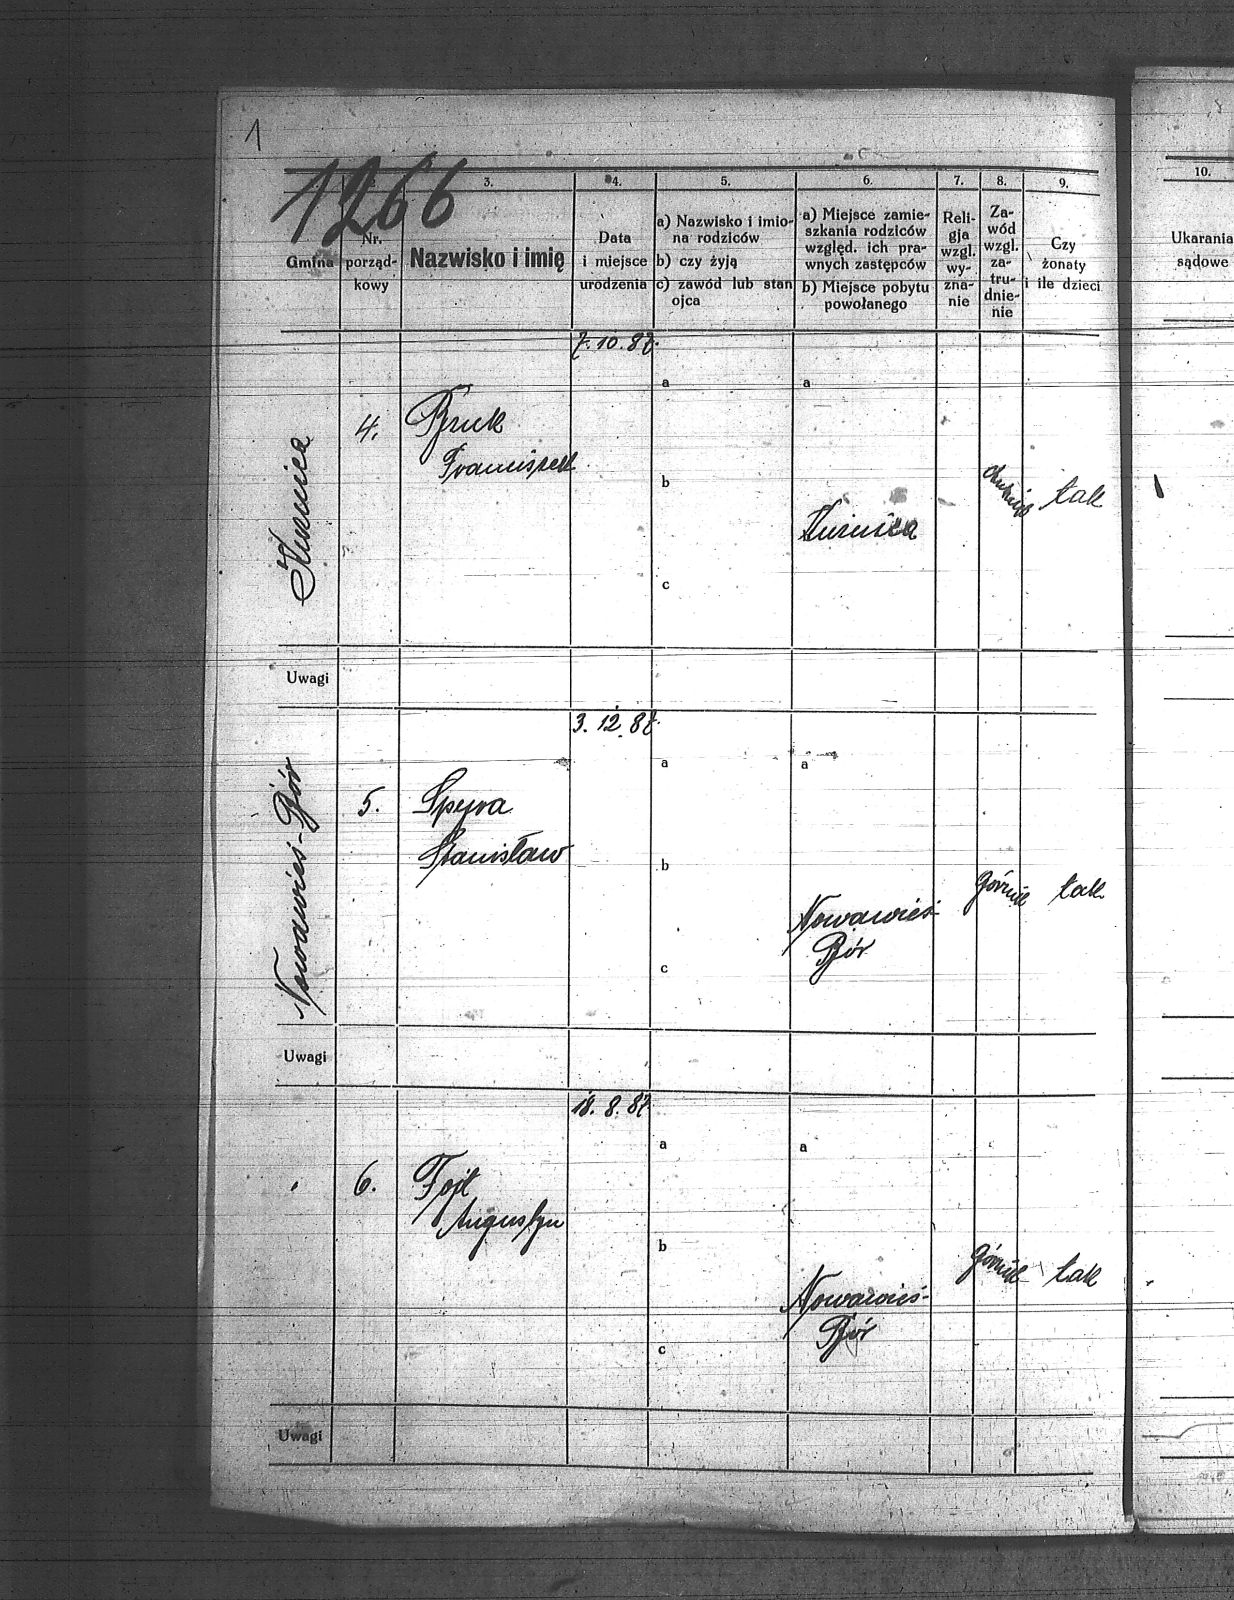 1
1266
3.
4.
5.
6.
7.
8.
9.
10.
Gmina
Nr.
porząd-
kowy
Nazwisko i imię
Data
i miejsce
urodzenia
a) Nazwisko i imio-
na rodziców
b) czy żyją
c) zawód lub stan
ojca
a) Miejsce zamie-
szkania rodziców
względ. ich pra-
wnych zastępców
b) Miejsce pobytu
powołanego
Reli-
gja
wzgl.
wy-
zna-
nie
Za-
wód
wzgl.
za-
tru-
dnie-
nie
Czy
żonaty
i ile dzieci
Ukarania
sądowe
4.
Franciszek
7. 10. 87.
a
b
c
a
tak
Uwagi
Nowawieś-Bór
5.
Spyra
Stanisław
3. 12. 87.
a
b
c
a
Nowawieś-
Bór
Górnik
tak
Uwagi
6.
Fojt
Augustyn
18. 8. 87.
a
b
c
a
Nowawieś-
Bór
Górnik
tak
Uwagi